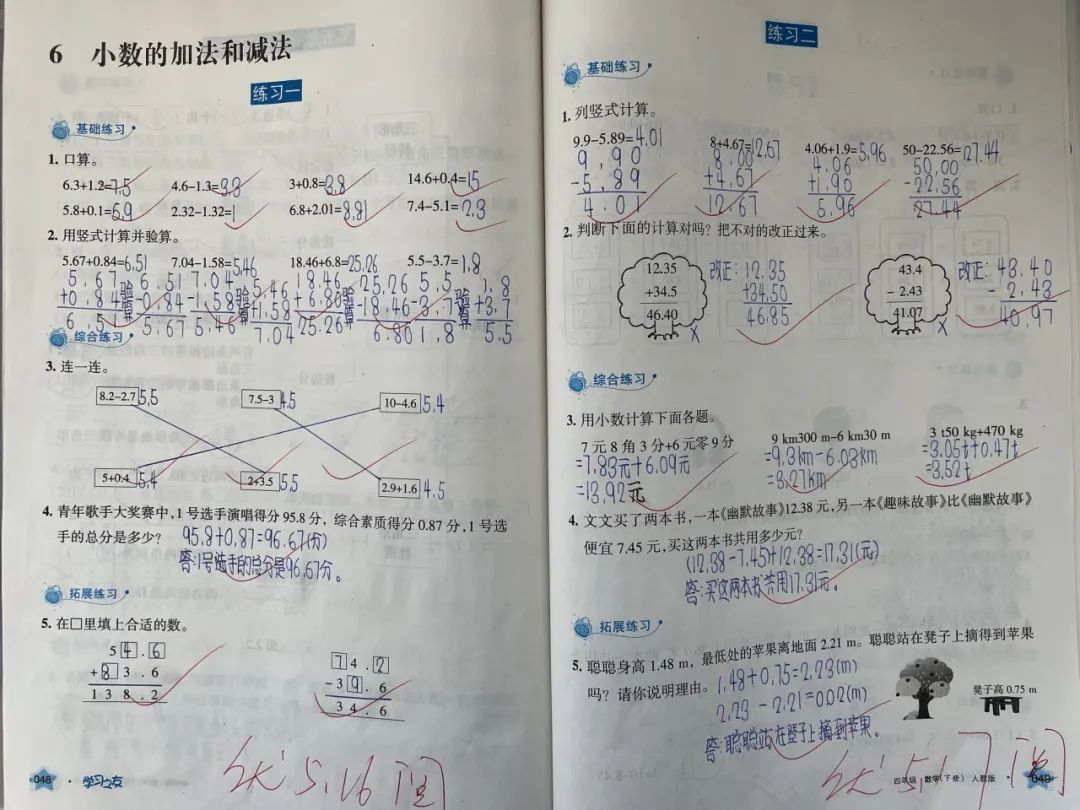 6 小数的加法和减法
练习一
基础练习
1. 口算。
6.3+1.2=7.5 4.6-1.3=3.3 3+0.8=3.8 14.6+0.4=15
5.8+0.1=5.9 2.32-1.32=1 6.8+2.01=8.81 7.4-5.1=2.3
2. 用竖式计算并验算。
5.67+0.84=6.51 7.04-1.58=5.46 18.46+6.8=25.26 5.5-3.7=1.8
5.67 6.51 7.04 5.46 18.46 25.26 5.5 1.8
+0.84 验算 -0.84 -1.58 验算 +1.58 +6.80 验算 -18.46 -3.7 验算 +3.7
6.51 5.67 5.46 7.04 25.26 6.80 1.8 5.5
综合练习
3. 连一连。
8.2-2.7 5.5 7.5-3 4.5 10-4.6 5.4
5+0.4 5.4 2+3.5 5.5 2.9+1.6 4.5
4. 青年歌手大奖赛中,1号选手演唱得分95.8分,综合素质得分0.87分,1号选
手的总分是多少?
95.8+0.87=96.67(分)
答:1号选手的总分是96.67分。
拓展练习
5. 在□里填上合适的数。
5 4 . 6
+ 8 3 . 6
1 3 8 . 2
7 4 . 2
- 3 9 . 6
3 4 . 6
优 5.16 阅
048 · 学习之友
练习二
基础练习
1. 列竖式计算。
9.9-5.89=4.01 8+4.67=12.67 4.06+1.9=5.96 50-22.56=27.44
9.90 8.00 4.06 50.00
-5.89 +4.67 +1.90 -22.56
4.01 12.67 5.96 27.44
2. 判断下面的计算对吗?把不对的改正过来。
12.35 改正:12.35 43.4 改正:43.40
+34.5 +34.50 - 2.43 - 2.43
46.40 46.85 41.07 40.97
X X
综合练习
3. 用小数计算下面各题。
7元8角3分+6元零9分 9 km300 m-6 km30 m 3 t50 kg+470 kg
=7.83元+6.09元 =9.3km-6.03km =3.05t+0.47t
=13.92元 =3.27km =3.52t
4. 文文买了两本书,一本《幽默故事》12.38元,另一本《趣味故事》比《幽默故事》
便宜7.45元,买这两本书共用多少元?
(12.38-7.45)+12.38=17.31(元)
答:买这两本书共用17.31元。
拓展练习
5. 聪聪身高1.48 m,最低处的苹果离地面2.21 m。聪聪站在凳子上摘得到苹果
吗?请你说明理由。
1.48+0.75=2.23(m)
2.23-2.21=0.02(m)
答:聪聪站在凳子上摘到苹果。
凳子高0.75 m
优 5.17 阅
四年级 数学(下册) 人教版 · 049